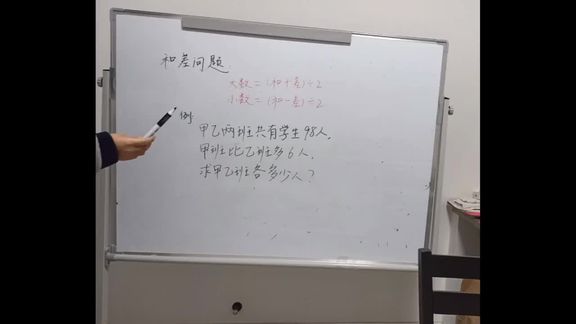 和差问题
大数=(和+差)÷2
小数=(和-差)÷2
例
甲乙两班共有学生98人,
甲班比乙班多6人,
求甲乙班各多少人?